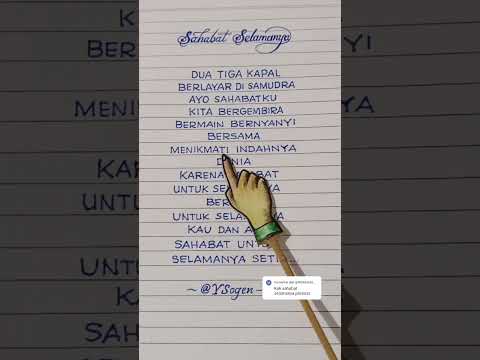 Sahabat Selamanya
DUA TIGA KAPAL
BERLAYAR DI SAMUDRA
AYO SAHABATKU
KITA BERGEMBIRA
BERMAIN BERNYANYI
BERSAMA
MENIKMATI INDAHNYA
DUNIA
KARENA
UNTUK
UNTUK
KAU DAN
SAHABAT
SELAMANYA
~ @YSogen ~
Kak sahabat